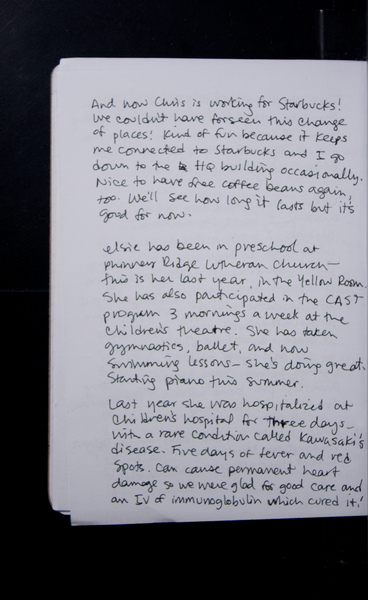 And now Chris is working for Starbucks!
We couldn't have forseen this change
of places! Kind of fun because it keeps
me connected to Starbucks and I go
down to the HQ building occasionally.
Nice to have free coffee beans again,
too. We'll see how long it lasts but it's
good for now.
Elsie has been in preschool at
Phinney Ridge Lutheran Church—
this is her last year, in the Yellow Room.
She has also participated in the CAST
program 3 mornings a week at the
Children's Theatre. She has taken
gymnastics, ballet, and now
swimming lessons – she's doing great.
Starting piano this summer.
Last year she was hospitalized at
Children's hospital for three days –
with a rare condition called Kawasaki's
disease. Five days of fever and red
spots. Can cause permanent heart
damage so we were glad for good care and
an IV of immunoglobulin which cured it!